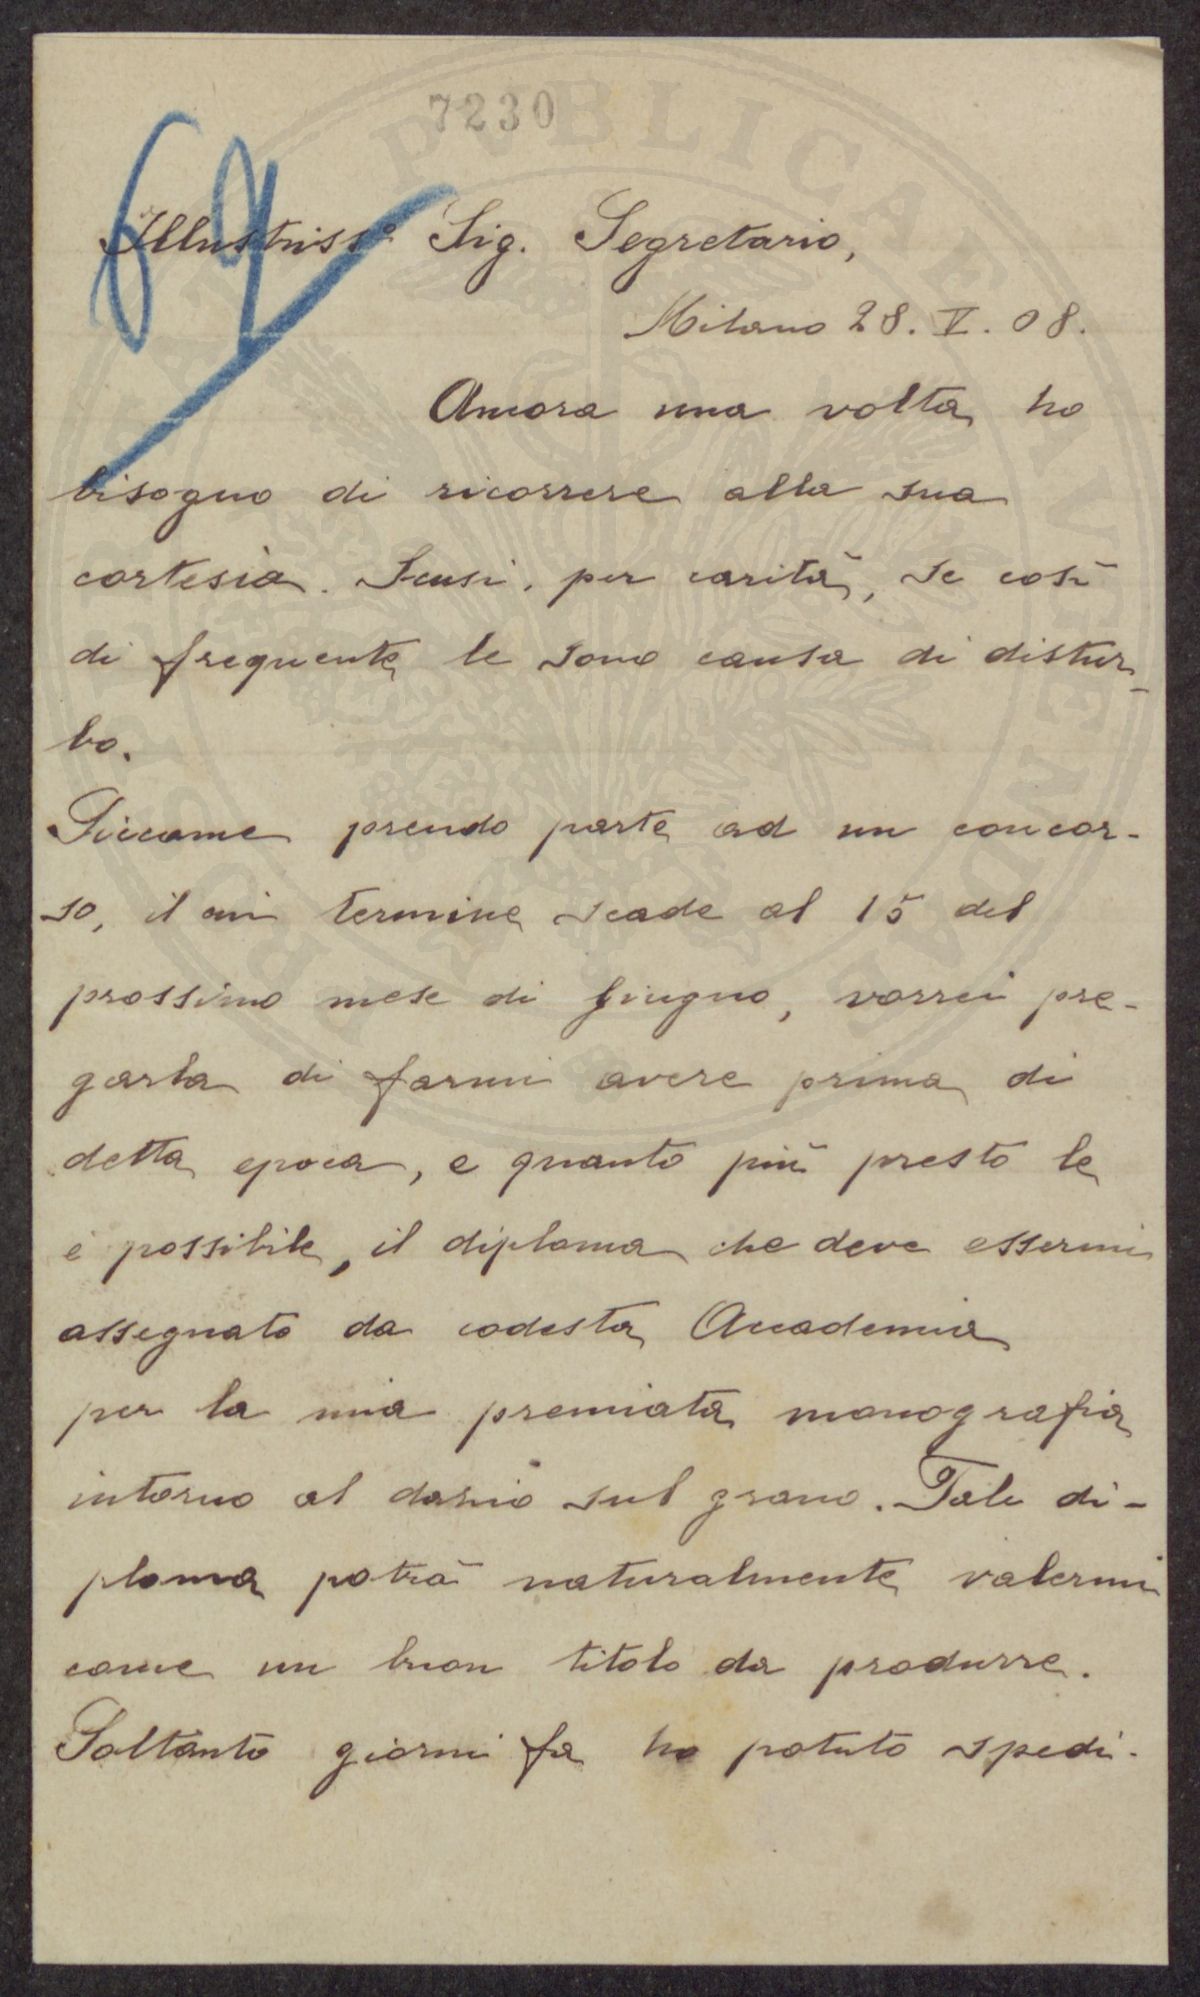 7230
Illustriss.º Sig. Segretario,
Milano 28. V. 08.
Ancora una volta ho
bisogno di ricorrere alla sua
cortesia. Scusi, per carità, se così
di frequente le sono causa di distur-
bo.
Siccome prendo parte ad un concor-
so, il cui termine scade al 15 del
prossimo mese di giugno, vorrei pre-
garla di farmi avere prima di
detta epoca, e quanto più presto le
è possibile, il diploma che deve essermi
assegnato da codesta Accademia
per la mia premiata monografia
intorno al dazio sul grano. Tale di-
ploma potrà naturalmente valermi
come un buon titolo da produrre.
Soltanto giorni fa ho potuto spedi-